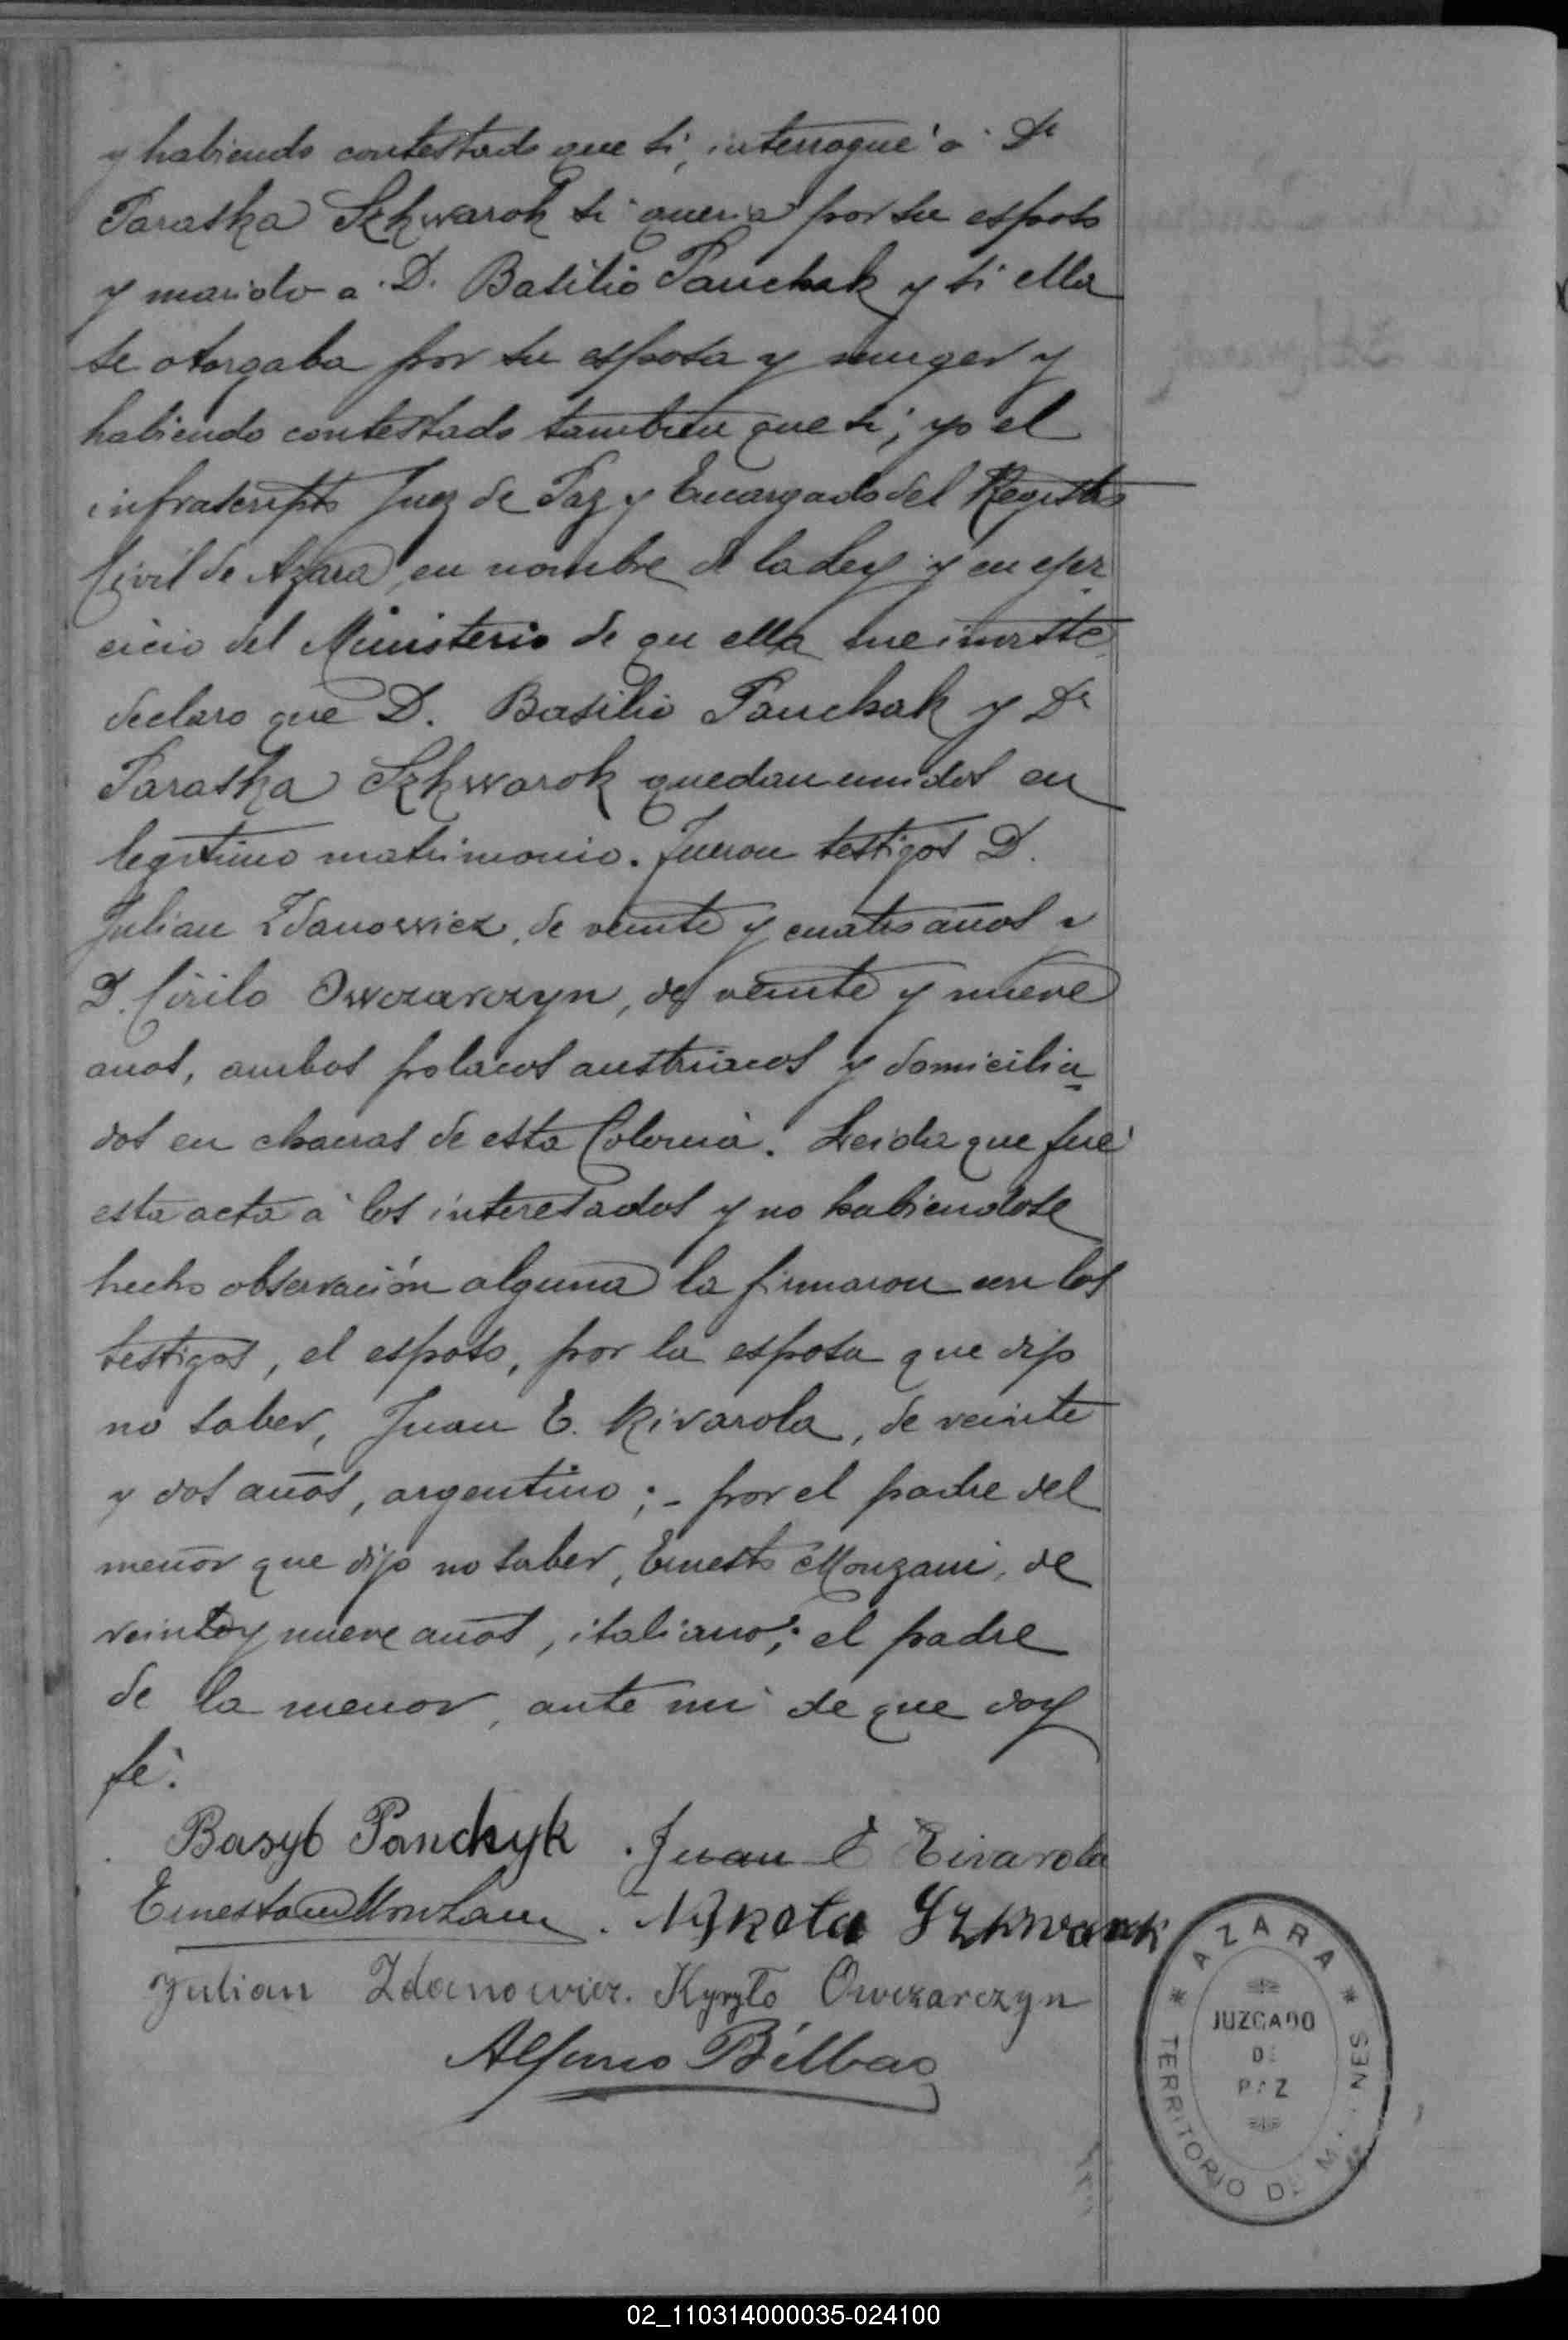 y habiendo contestado que si, interrogué á Dª
Paraska Szkwarok si queria por su esposo
y marido a D. Basilio Panchak y si ella
se otorgaba por su esposa y muger y
habiendo contestado tambien que si, yo el
infrascripto Juez de Paz y Encargado del Registro
Civil de Azara, en nombre de la Ley y en ejer
cicio del Ministerio de qu ella me inviste
declaro que D. Basilio Panchak y Dª
Paraska Szkwarok quedan unidos en
legitimo matrimonio. Fueron testigos D.
Julian Zdanowicz, de veinte y cuatro años y
D. Cirilo Owczarczyn, de veinte y nueve
años, ambos polacos austriacos y domicilia
dos en chacras de esta Colonia. Leida que fué
esta acta á los interesados y no habiendose
hecho observación alguna la firmaron con los
testigos, el esposo, por la esposa que dijo
no saber, Juan E. Rivarola, de veinte
y dos años, argentino; - por el padre del
menor que dijo no saber, Ernesto Monzani, de
veinte y nueve años, italiano; el padre
de la menor, ante mi de que doy
fé.
Basyl Panchyk Juan E Rivarola
Ernesto Monzani Mykota Szkwarok
Julian Zdanowicz. Kyryło Owczarczyn
Alfonso Bilbao
* AZARA *
JUZGADO
DE
PAZ
TERRITORIO DE MISIONES
02_110314000035-024100